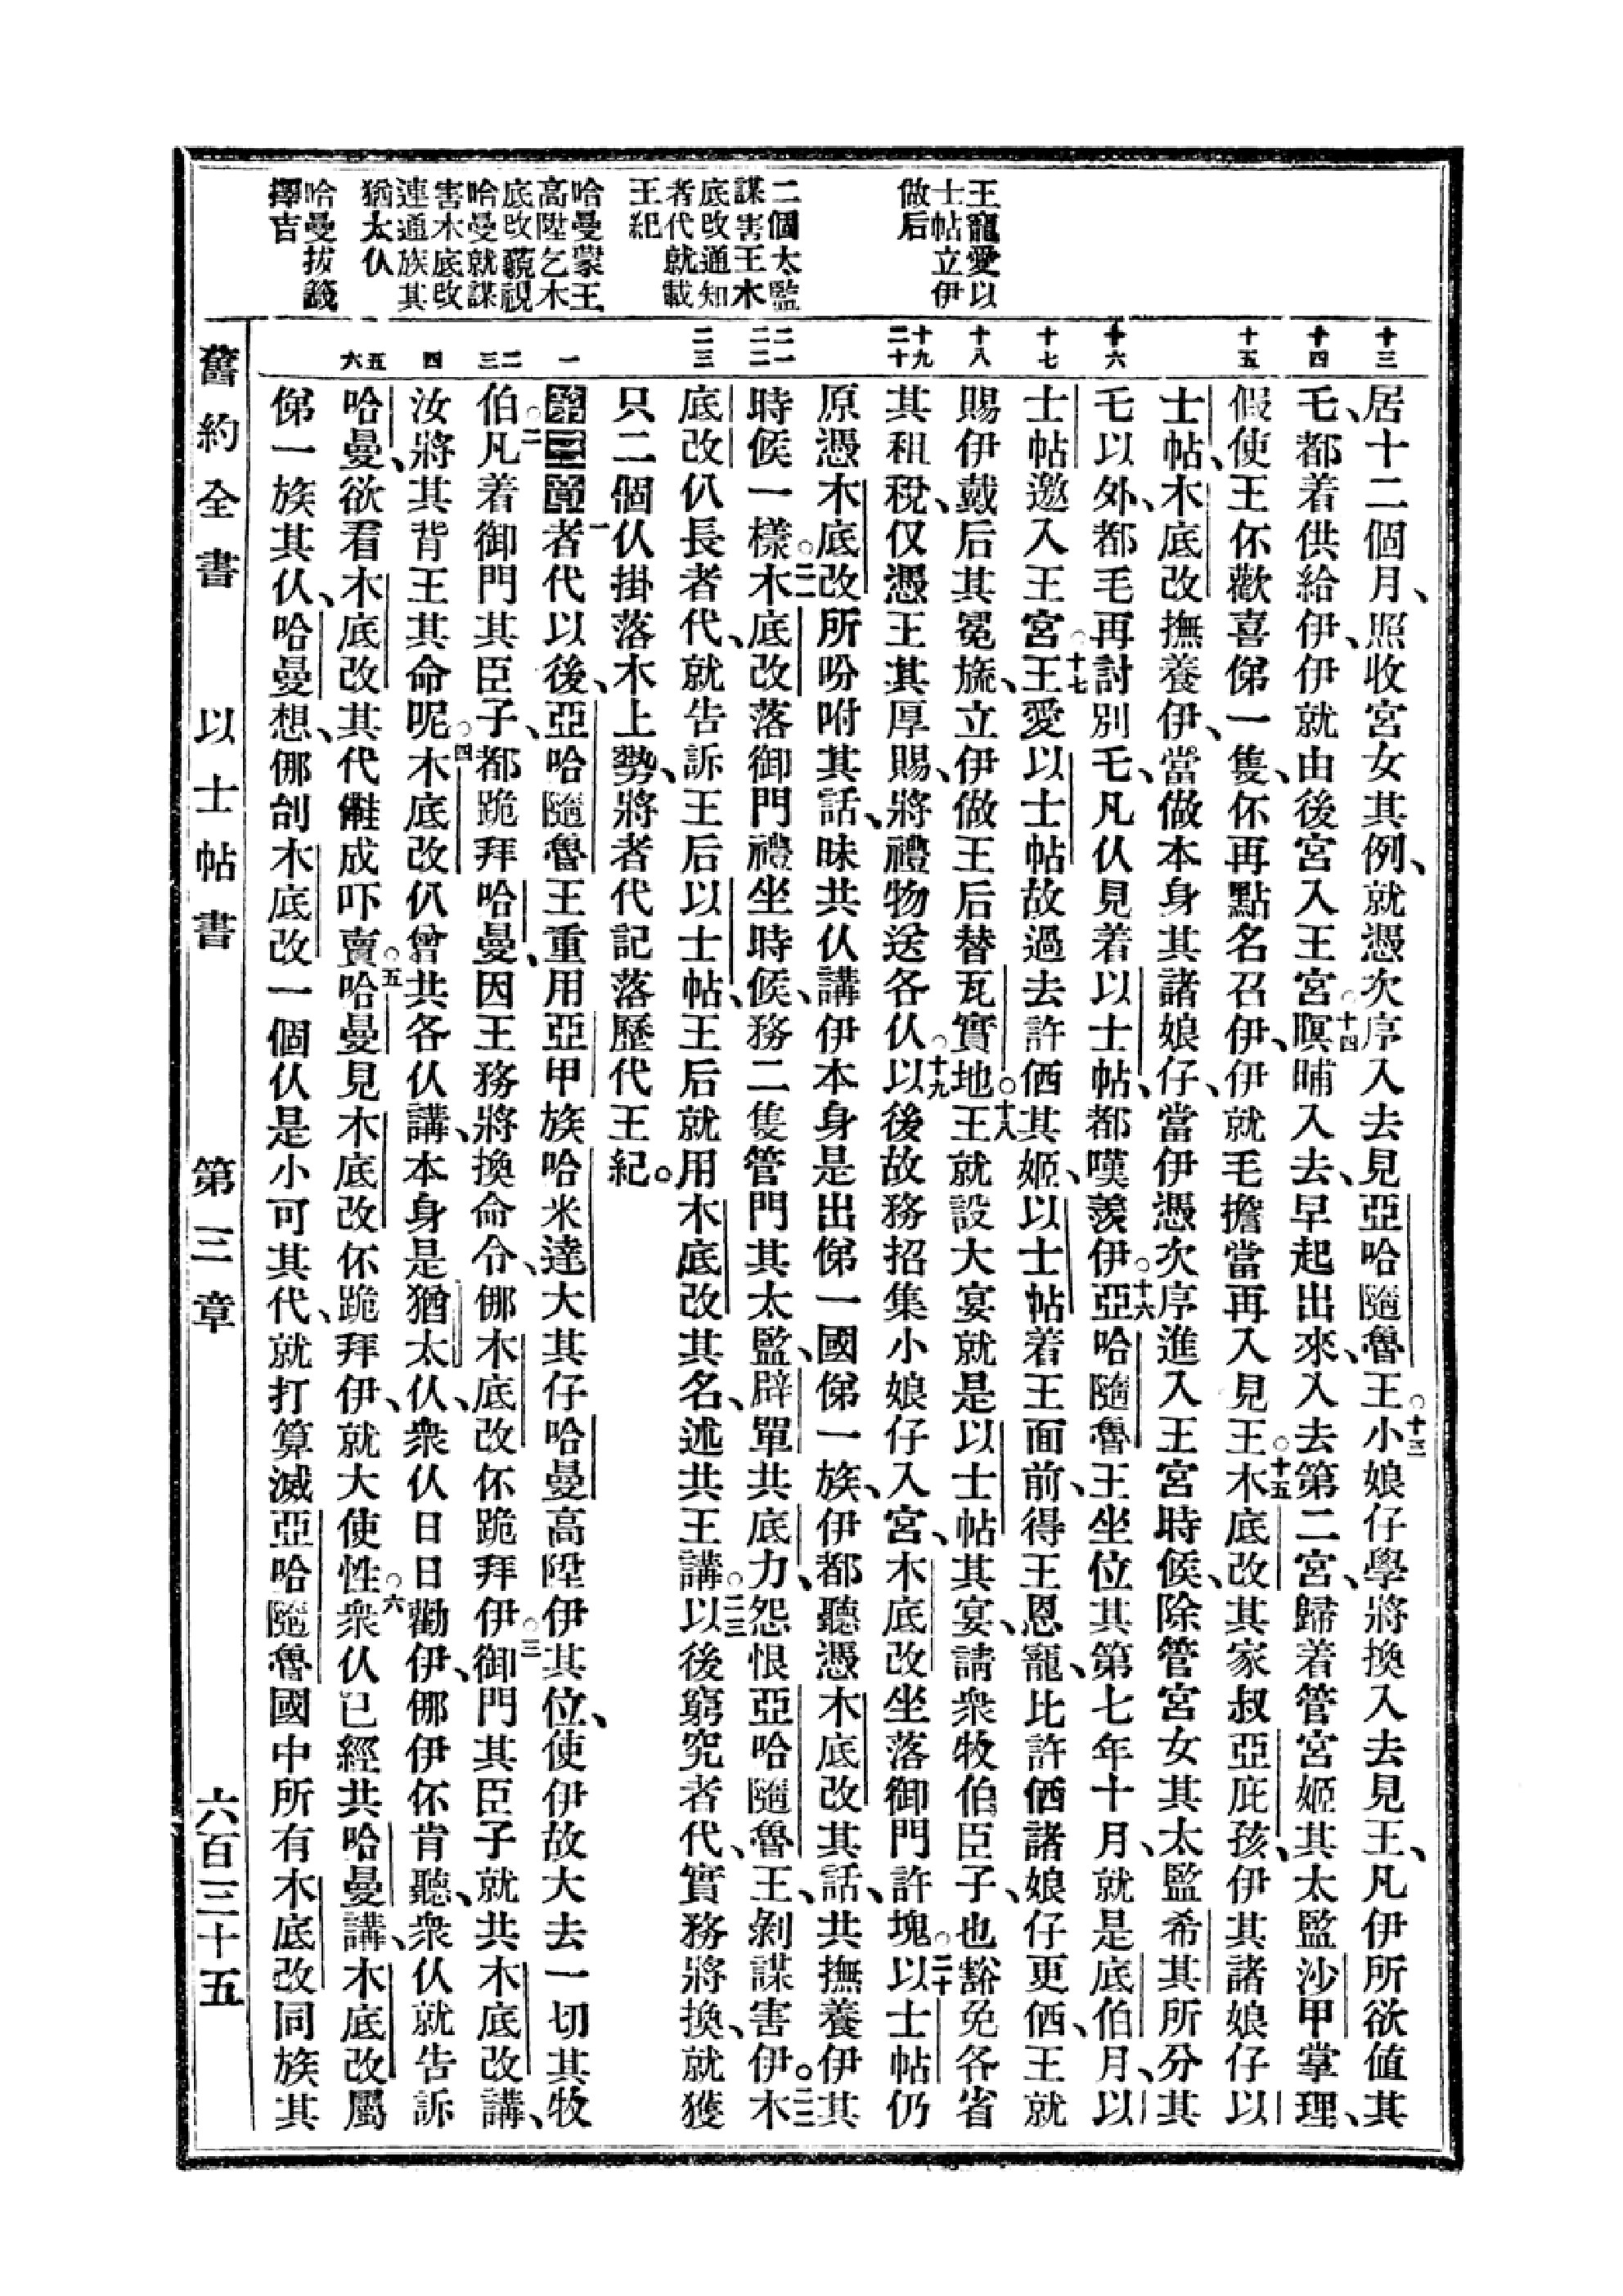 王寵愛以
士帖立伊
做后
二個太監
謀害王木
底改通知
者代就載
王紀
哈曼蒙王
高陞乞木
底改藐視
哈曼就謀
害木底改
連通族其
猶太仫
哈曼拔籤
擇吉
十三
十四
十五
十六
十七
十八
十九
二十
二一
二二
二三
一
二
三
四
五
六
居十二個月、照收宮女其例、就憑次序入去見亞哈隨魯王。十三小娘仔學將換入去見王、凡伊所欲值其
毛、都着供給伊、伊就由後宮入王宮。十四暝晡入去、早起出來、入去第二宮、歸着管宮姬其太監沙甲掌理、
假使王伓歡喜俤一隻、伓再點名召伊、伊就毛擔當再入見王。十五木底改其家叔亞庇孩、伊其諸娘仔以
士帖、木底改撫養伊、當做本身其諸娘仔、當伊憑次序進入王宮時候、除管宮女其太監希其所分其
毛以外、都毛再討別毛、凡仫見着以士帖、都嘆羨伊。十六亞哈隨魯王坐位其第七年十月、就是底伯月、以
士帖邀入王宮。十七王愛以士帖故過去許偤其姬、以士帖着王面前、得王恩寵、比許偤諸娘仔更偤、王就
賜伊戴后其冕旒、立伊做王后替瓦實地。十八王就設大宴就是以士帖其宴、請衆牧伯臣子、也豁免各省
其租稅、仅憑王其厚賜、將禮物送各仫。十九以後故務招集小娘仔入宮、木底改坐落御門許塊。二十以士帖仍
原憑木底改所吩咐其話、昧共仫講伊本身是出俤一國俤一族、伊都聽憑木底改其話、共撫養伊其
時候一樣。二一木底改落御門禮坐時候、務二隻管門其太監、辟單共底力、怨恨亞哈隨魯王、剝謀害伊。二二木
底改仈長者代、就告訴王后以士帖、王后就用木底改其名、述共王講。二三以後窮究者代、實務將換、就獲
只二個仫掛落木上㔟、將者代記落歷代王紀。
第三章一者代以後、亞哈隨魯王重用亞甲族哈米達大其仔哈曼高陞伊其位、使伊故大去一切其牧
伯。二凡着御門其臣子、都跪拜哈曼、因王務將換命令、㑚木底改伓跪拜伊。三御門其臣子就共木底改講、
汝將其背王其命呢。四木底改仈曾共各仫講、本身是猶太仫、衆仫日日勸伊、㑚伊伓肯聽、衆仫就告訴
哈曼、欲看木底改其代㒰成吓賣。五哈曼見木底改伓跪拜伊、就大使性。六衆仫已經共哈曼講、木底改屬
俤一族其仫、哈曼想、㑚刣木底改一個仫是小可其代、就打算滅亞哈隨魯國中所有木底改同族其
舊約全書　以士帖書　第三章　六百三十五